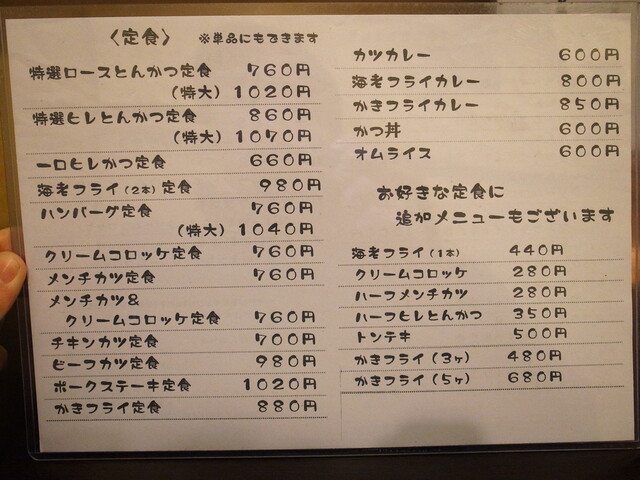 〈定食〉 ※単品にもできます
特選ロースとんかつ定食 760円
(特大) 1020円
特選ヒレとんかつ定食 860円
(特大) 1070円
一口ヒレかつ定食 660円
海老フライ(2本)定食 980円
ハンバーグ定食 760円
(特大) 1040円
クリームコロッケ定食 760円
メンチカツ定食 760円
メンチカツ&
クリームコロッケ定食 760円
チキンカツ定食 700円
ビーフカツ定食 980円
ポークステーキ定食 1020円
かきフライ定食 880円
カツカレー 600円
海老フライカレー 800円
かきフライカレー 850円
かつ丼 600円
オムライス 600円
お好きな定食に
追加メニューもございます
海老フライ(1本) 440円
クリームコロッケ 280円
ハーフメンチカツ 280円
ハーフヒレとんかつ 350円
トンテキ 500円
かきフライ(3ヶ) 480円
かきフライ(5ヶ) 680円